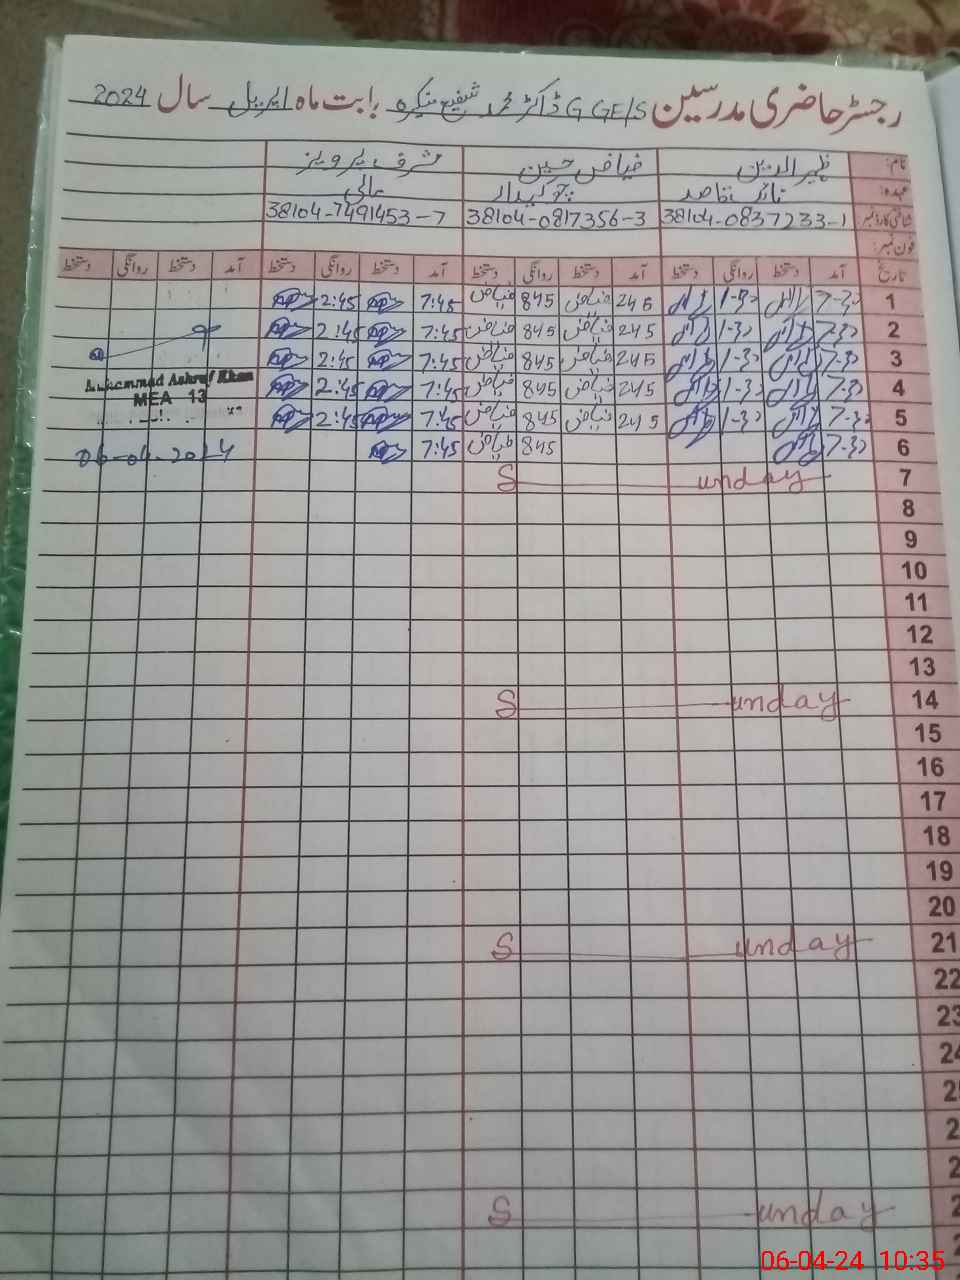 رجسٹر حاضری مدرسین G GE/S ڈاکٹر محمد شفیع منکرہ بابت ماہ اپریل سال 2024
نام: ظہیرالدین فیاض حسین مشرف پرویز
عہدہ: نائب قاصد چوکیدار مالی
شناختی کارڈ نمبر 38104-0837233-1 38104-0817356-3 38104-7491453-7
فون نمبر:
تاریخ آمد دستخط روانگی دستخط آمد دستخط روانگی دستخط آمد دستخط روانگی دستخط آمد دستخط روانگی دستخط
1 7-30 1-30 245 فیاض 845 فیاض 7:45 2:45
2 7-30 1-30 245 فیاض 845 فیاض 7:45 2:45
3 7-30 1-30 245 فیاض 845 فیاض 7:45 2:45
4 7-30 1-30 245 فیاض 845 فیاض 7:45 2:45
5 7-30 1-30 245 فیاض 845 فیاض 7:45 2:45
6 7-30 845 فیاض 7:45
Muhammad Ashraf Khan
MEA 13
06-04-2024
7 Sunday
8
9
10
11
12
13
14 Sunday
15
16
17
18
19
20
21 Sunday
22
23
24
2
2
2
2 Sunday
2
06-04-24 10:35